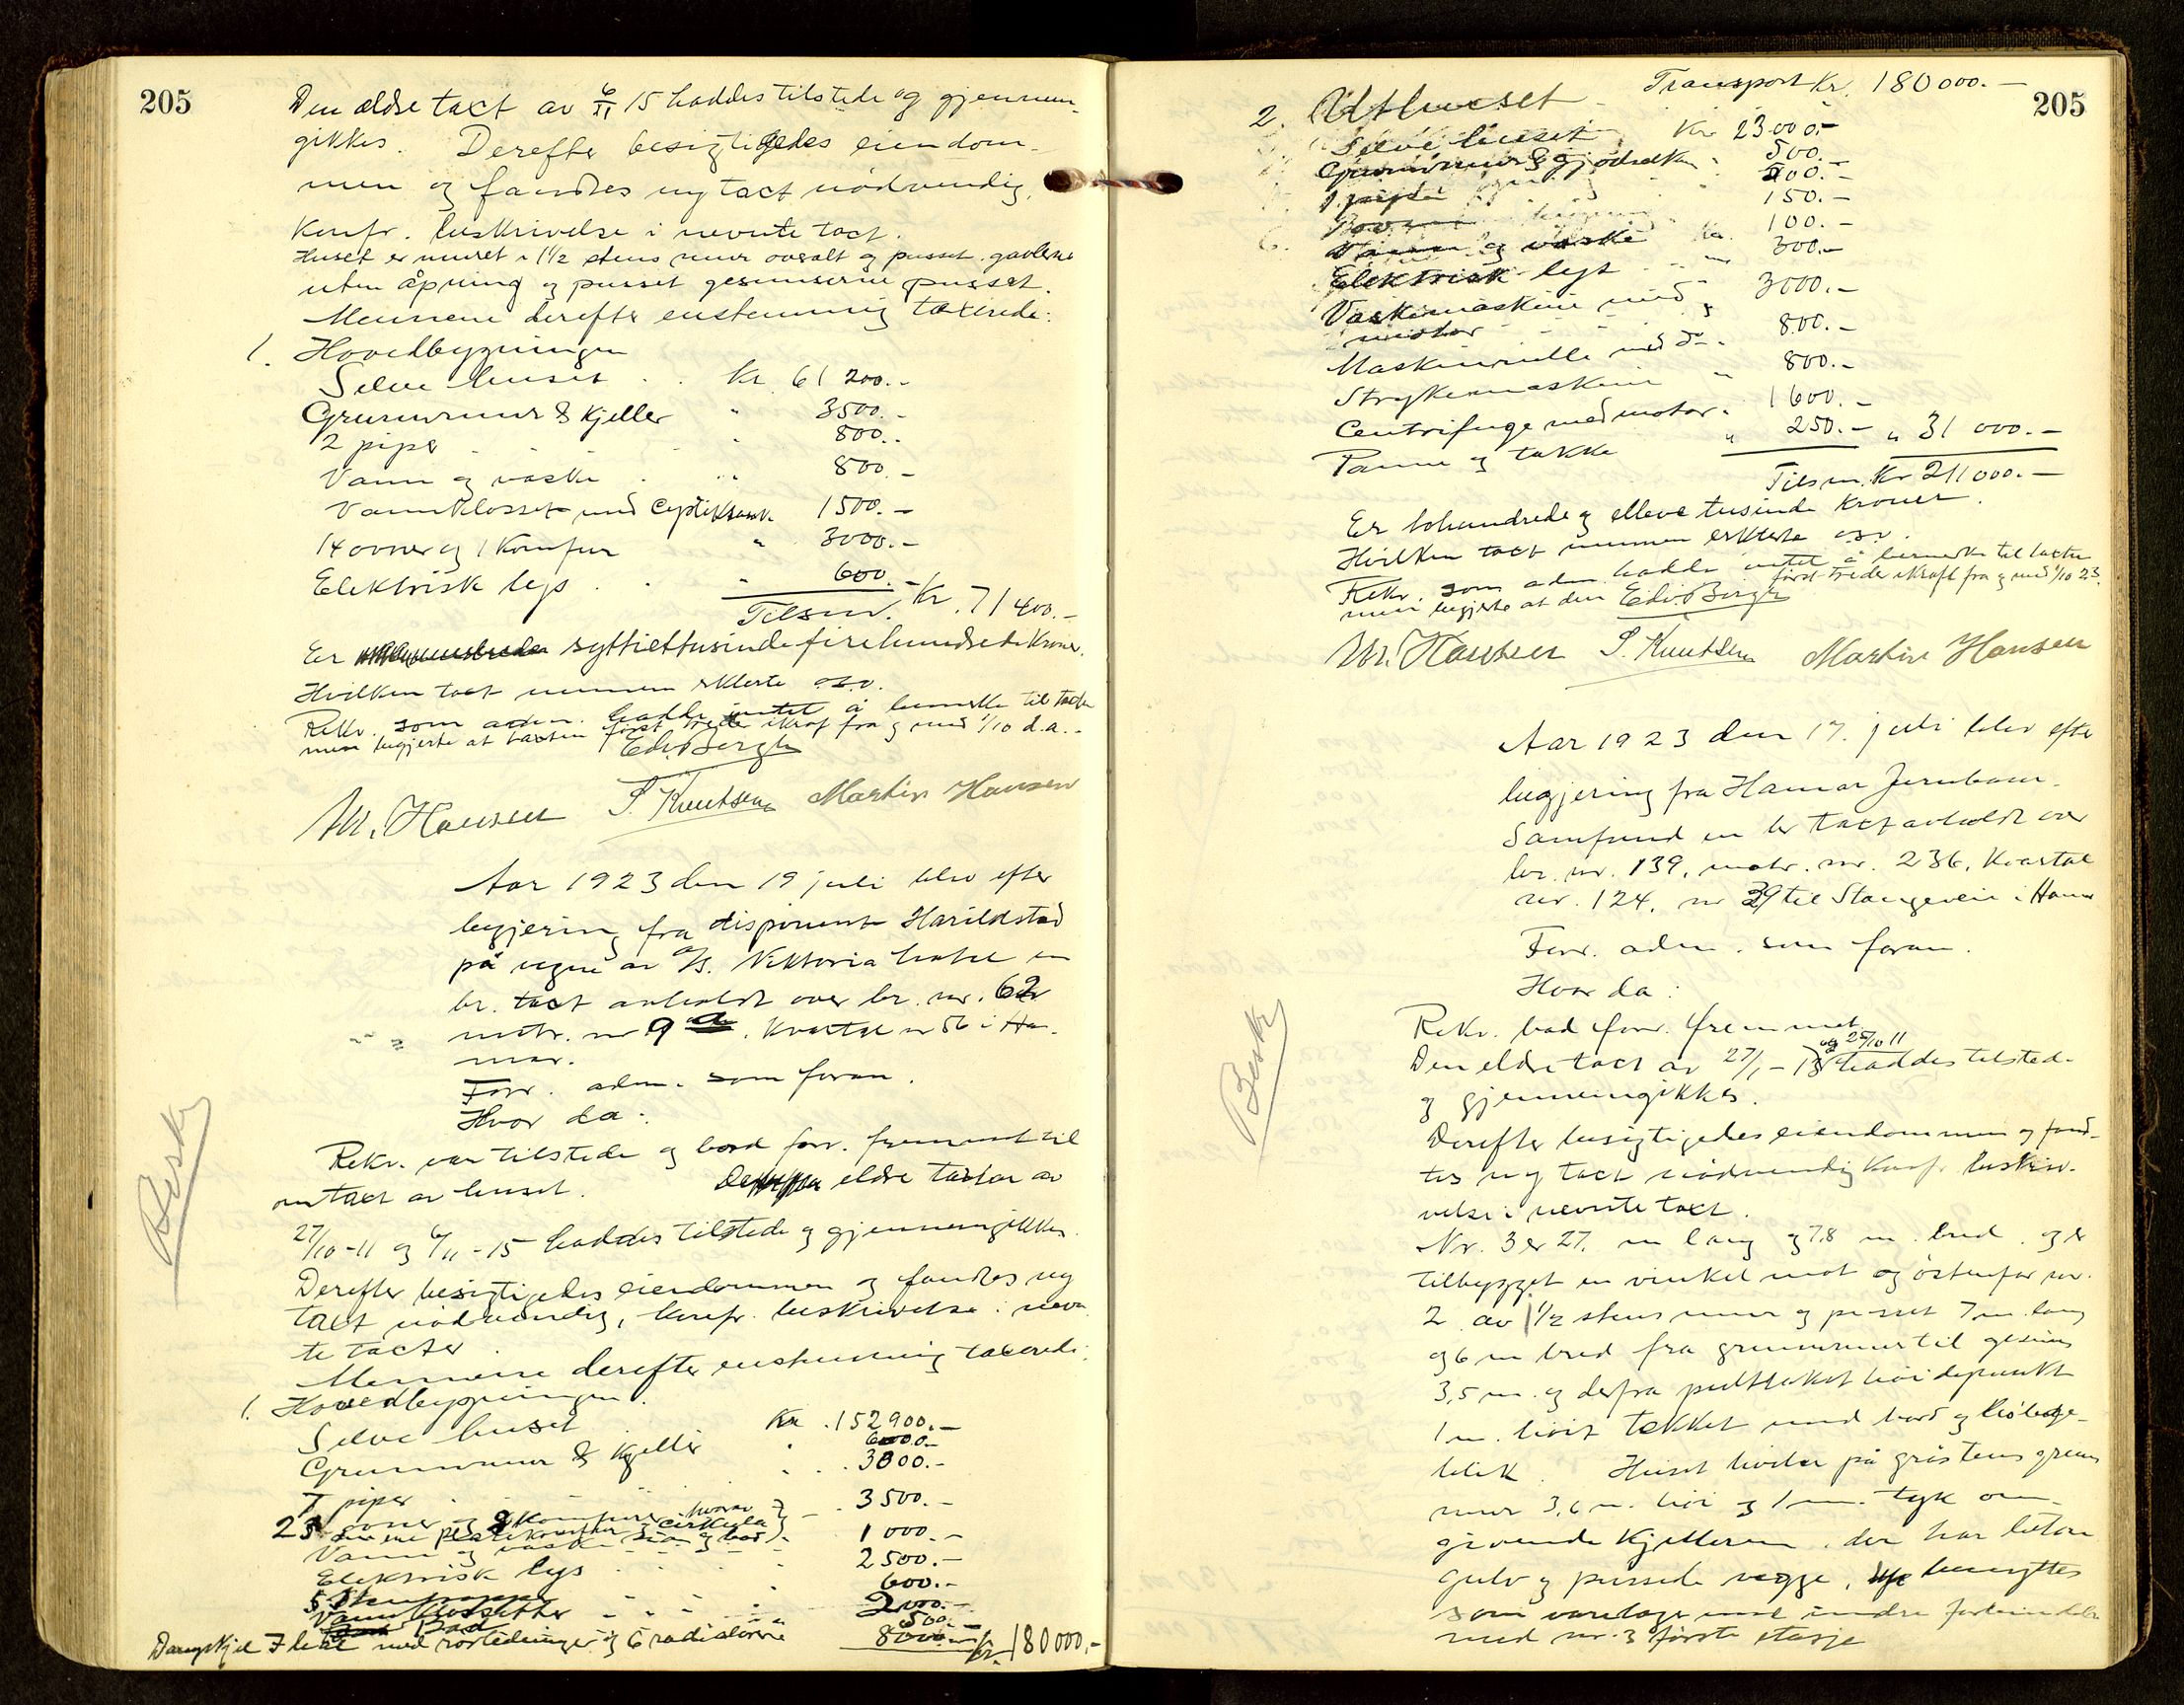 205
Den ældre taxt av 6/XI 15 haddes tilstede og gjennem-
gikkes. Derefter besigtigedes eiendom-
men og fandtes ny taxt nödvendig,
konfr. beskrivelse i nevnte taxt.
Huset er muret i 1 1/2 stens mur overalt og pusset. gavlene
uten åpning og pusset gesimserne pusset.
Mennene derefter enstemmig taxerede:
1. Hovedbygningen
Selve huset . . Kr. 61 200.-
Grunnmur & Kjeller " 3500.-
2 piper . . " 800.-
Vann og vaske . " 800.-
Vannklosset med 1500.-
14 ovner og 1 Komfur " 3000.-
Elektrisk lys . . " 600.-
Tilsm. Kr. 71 400.-
Er syttiettusindefirehundrede Kroner.
Hvilken taxt mennen erklerte o.s.v.
Rekv. som adm. hadde intet å bemerke til taxten
men begjerte at taxten först treder ikraft fra og med 1/10 d.a.-
Edv. Bergh
M. Hansen S. Knutsen Martin Hansen
Aar 1923 den 19 juli blev efter
begjering fra disponent Harildstad
på vegne av A/S. Viktoria hotel en
br. taxt avholdt over br. nr. 62
matr. nr 9 . Kvartal nr 56 i Ha-
mar.
Forr. adm. som foran.
Hvor da:
Rekv. var tilstede og bad forr. fremmet til
omtaxt av huset. eldre taxter av
27/10-11 og 6/11-15 haddes tilstede og gjennemgikkes.
Derefter besigtigedes eiendommen og fandtes ny
taxt nödvendig, konfr. beskrivelse i nevn-
te taxter.
Mennene derefter enstemmig taxerede:
1. Hovedbygningen.
Selve huset . Kr. 152900.-
Grunnmur & Kjeller . 6000.-
7 piper . . . 3000.-
ovner og Komfurer hvorav 3500.-
Vann og vaske 1000.-
Elektrisk lys . . . 2500.-
5 600.-
Vannklossetter . . . 2000.-
Bad 500.-
Dampkjel med rörledninger og 6 radiatorer 8000.- Kr. 180000,-
Besk.
205
Transport Kr. 180000.-
2. Uthuset
Selve huset Kr 23000.-
Grunnmur & 500.-
1 pipe 500.-
150.-
og vaske Kr. 100.-
Elektrisk lys . . 300.-
Vaskemaskine med
motor . . . 3000.-
Maskinrulle med do. 800.-
Strykemaskine " 800.-
Centrifuge med motor. 1600.-
Panne og takke " 250.- " 31 000.-
Tilsm. Kr 211000.-
Er tohundrede og elleve tusinde Kroner.
Hvilken taxt mennen erklerte o.s.v.
Rekv. som adm. hadde intet å bemerke til taxten
men begjerte at den först treder ikraft fra og med 1/10 23.
Edv. Bergh
M. Hansen S. Knutsen Martin Hansen
Aar 1923 den 17. juli blev efter
begjering fra Hamar Jernbane-
Samfund en br. taxt avholdt over
br. nr. 139, matr. nr. 236, Kvartal
nr. 124, nr 39 til Stangeveien i Hamar
Forr. adm. som foran.
Hvor da:
Rekv. bad forr. fremmet.
Den eldre taxt av 27/1-13 og 25/10 11 haddes tilsted-
og gjennemgikkes.
Derefter besigtigedes eiendommen og fand-
tes ny taxt nödvendig konfr. beskriv-
velse i nevnte taxt.
Nr. 3 er 27. m lang og 7,8 m. bred. og er
tilbygget en vinkel mot og östenfor nr.
2 av 1 1/2 stens mur og pusset 7 m. lang
og 6 m bred fra grunnmur til gesims
3,5 m. og derfra pulttaket höidepunkt
1 m. höit tekket med bord og bölge-
blik. Huset hviler på gråstens grunn
mur 3,6 m. höi og 1 m. tyk om-
givende Kjelleren. der har beton
gulv og pussede vegge, benyttes
som varelager med indre forbindelse
med nr. 3 förste etasje
Besk.